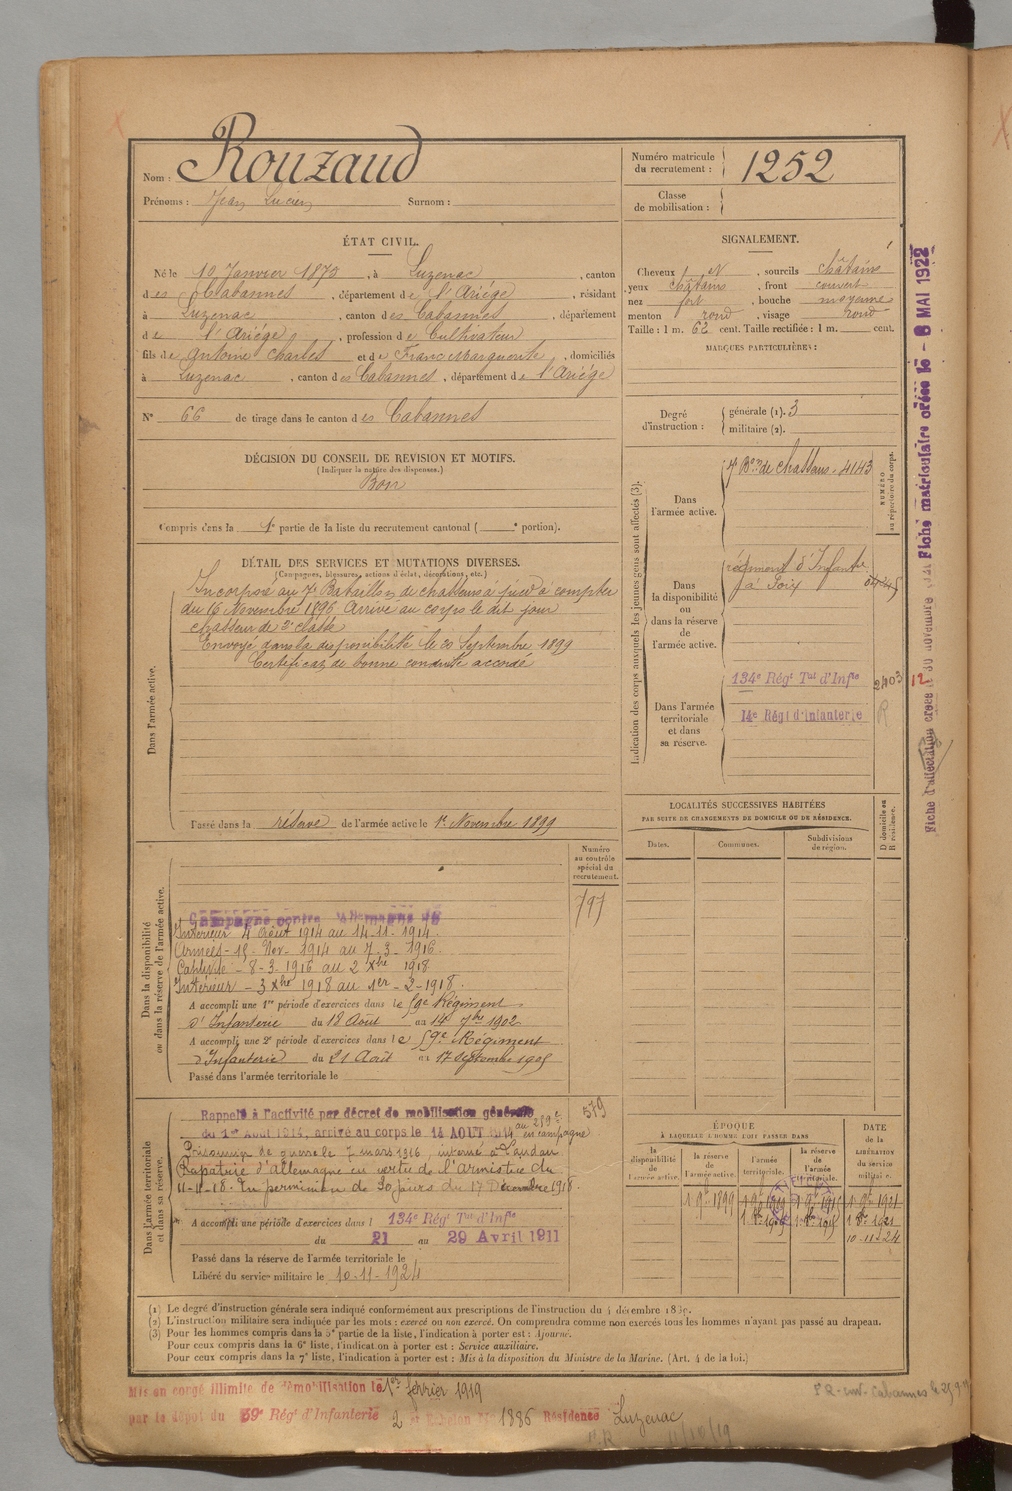 Nom : Rouzaud
Prénoms : Jean Lucien Surnom :
Numéro matricule du recrutement : 1252
Classe de mobilisation :
ÉTAT CIVIL.
Né le 10 Janvier 1875, à Luzenac, canton
des Cabannes, département de l'Ariége, résidant
à Luzenac, canton des Cabannes, département
de l'Ariége, profession de Cultivateur
fils de Antoine Charles et de Franc Marguerite, domiciliés
à Luzenac, canton des Cabannes, département de l'Ariége
N° 66 de tirage dans le canton des Cabannes
DÉCISION DU CONSEIL DE REVISION ET MOTIFS.
(Indiquer la nature des dispenses.)
Bon
Compris dans la 1e partie de la liste du recrutement cantonal ( e portion).
SIGNALEMENT.
Cheveux et, sourcils châtains
yeux châtains, front couvert
nez fort, bouche moyenne
menton rond, visage rond
Taille : 1 m. 62 cent. Taille rectifiée : 1 m. cent.
MARQUES PARTICULIÈRES :
Degré d'instruction : générale (1). 3
militaire (2).
DÉTAIL DES SERVICES ET MUTATIONS DIVERSES.
(Campagnes, blessures, actions d'éclat, décorations, etc.)
Dans l'armée active.
Incorporé au 7e Bataillon de chasseurs à pied à compter
du 16 Novembre 1896 Arrivé au corps le dit jour
chasseur de 2e classe
Envoyé dans la disponibilité le 20 Septembre 1899
Certificat de bonne conduite accordé
Passé dans la réserve de l'armée active le 1er Novembre 1899
Indication des corps auxquels les jeunes gens sont affectés (3).
NUMÉRO au répertoire du corps.
Dans l'armée active.
7e Bon de chasseurs 4143
Dans la disponibilité ou dans la réserve de l'armée active.
régiment d'Infanterie
à Foix
Dans l'armée territoriale et dans sa réserve.
134e Régt Tal d'Infie 2403
14e Régt d'Infanterie R
12
LOCALITÉS SUCCESSIVES HABITÉES
PAR SUITE DE CHANGEMENTS DE DOMICILE OU DE RÉSIDENCE.
D domicile ou R résidence.
Dates. Communes. Subdivisions de région.
Dans la disponibilité ou dans la réserve de l'armée active.
Numéro au contrôle spécial du recrutement.
797
Campagne contre l'Allemagne
Intérieur 4 Août 1914 au 14-11-1914
Armées - 15 - Nov - 1914 au 7-3-1916
Captivité - 8-3-1916 au 2 Xbre 1918
Intérieur - 3 Xbre 1918 au 1er - 2 - 1918
A accompli une 1re période d'exercices dans le 59e Régiment
d'Infanterie du 18 Août au 14 7bre 1902
A accompli une 2e période d'exercices dans le 59e Régiment
d'Infanterie du 21 Août au 17 septembre 1905
Passé dans l'armée territoriale le
Dans l'armée territoriale et dans sa réserve.
579
Rappelé à l'activité par décret de mobilisation générale
du 1er Août 1914, arrivé au corps le 14 AOUT 1914 au 259e en campagne
Prisonnier de guerre le 7 mars 1916, interné à Landau
Rapatrié d'Allemagne en vertu de l'armistice du
11-11-18. En permission de 30 jours du 17 Décembre 1918.
A accompli une période d'exercices dans l 134e Régt Tal d'Infie
du 21 au 29 Avril 1911
Passé dans la réserve de l'armée territoriale le
Libéré du service militaire le 10-11-1924
ÉPOQUE
À LAQUELLE L'HOMME DOIT PASSER DANS
DATE de la LIBÉRATION du service militaire.
la disponibilité de l'armée active. la réserve de l'armée active. l'armée territoriale. la réserve de l'armée territoriale.
1 9bre 1899 1 9bre 1909 1 9bre 1915 1 9bre 1921
1 8bre 1909 1 8bre 1915 1 8bre 1921
10-11-24
(1) Le degré d'instruction générale sera indiqué conformément aux prescriptions de l'instruction du 4 décembre 1889.
(2) L'instruction militaire sera indiquée par les mots : exercé ou non exercé. On comprendra comme non exercés tous les hommes n'ayant pas passé au drapeau.
(3) Pour les hommes compris dans la 5e partie de la liste, l'indication à porter est : Ajourné.
Pour ceux compris dans la 6e liste, l'indication à porter est : Service auxiliaire.
Pour ceux compris dans la 7e liste, l'indication à porter est : Mis à la disposition du Ministre de la Marine. (Art. 4 de la loi.)
Mis en congé illimité de démobilisation le 1er février 1919
par le dépôt du 59e Régt d'Infanterie 2 Échelon N° 1886 Résidence Luzenac
11/10/19
Fiche matriculaire créée le - 8 MAI 1922
Fiche d'affectation créée le 30 novembre